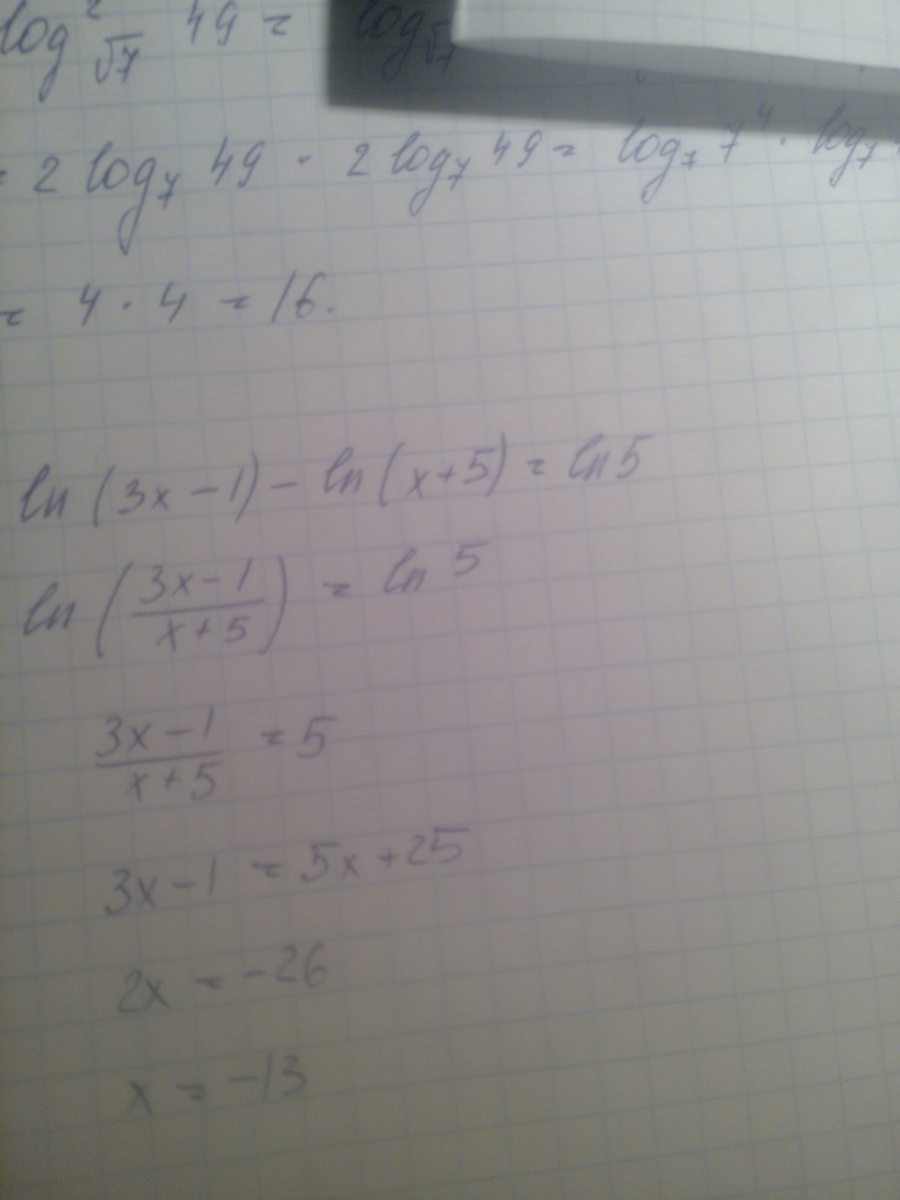 log²_√7 49 = log_√7
= 2 log₇ 49 · 2 log₇ 49 = log₇ 7⁴ · log₇
= 4 · 4 = 16.
ln (3x - 1) - ln (x+5) = ln 5
ln ((3x - 1)/(x + 5)) = ln 5
(3x - 1)/(x + 5) = 5
3x - 1 = 5x + 25
2x = -26
x = -13